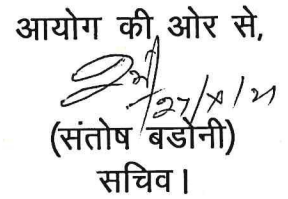 आयोग की ओर से,
27/X/21
(संतोष बडोनी)
सचिव।